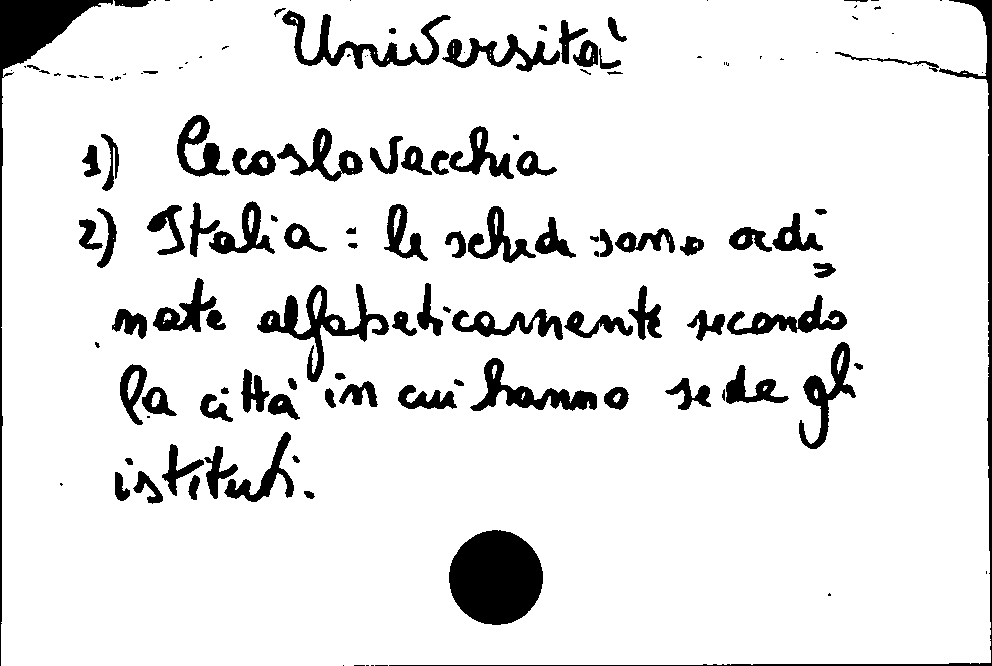 Università
1) Cecoslovacchia
2) Italia : le schede sono ordi=
nate alfabeticamente secondo
la città in cui hanno sede gli
istituti.